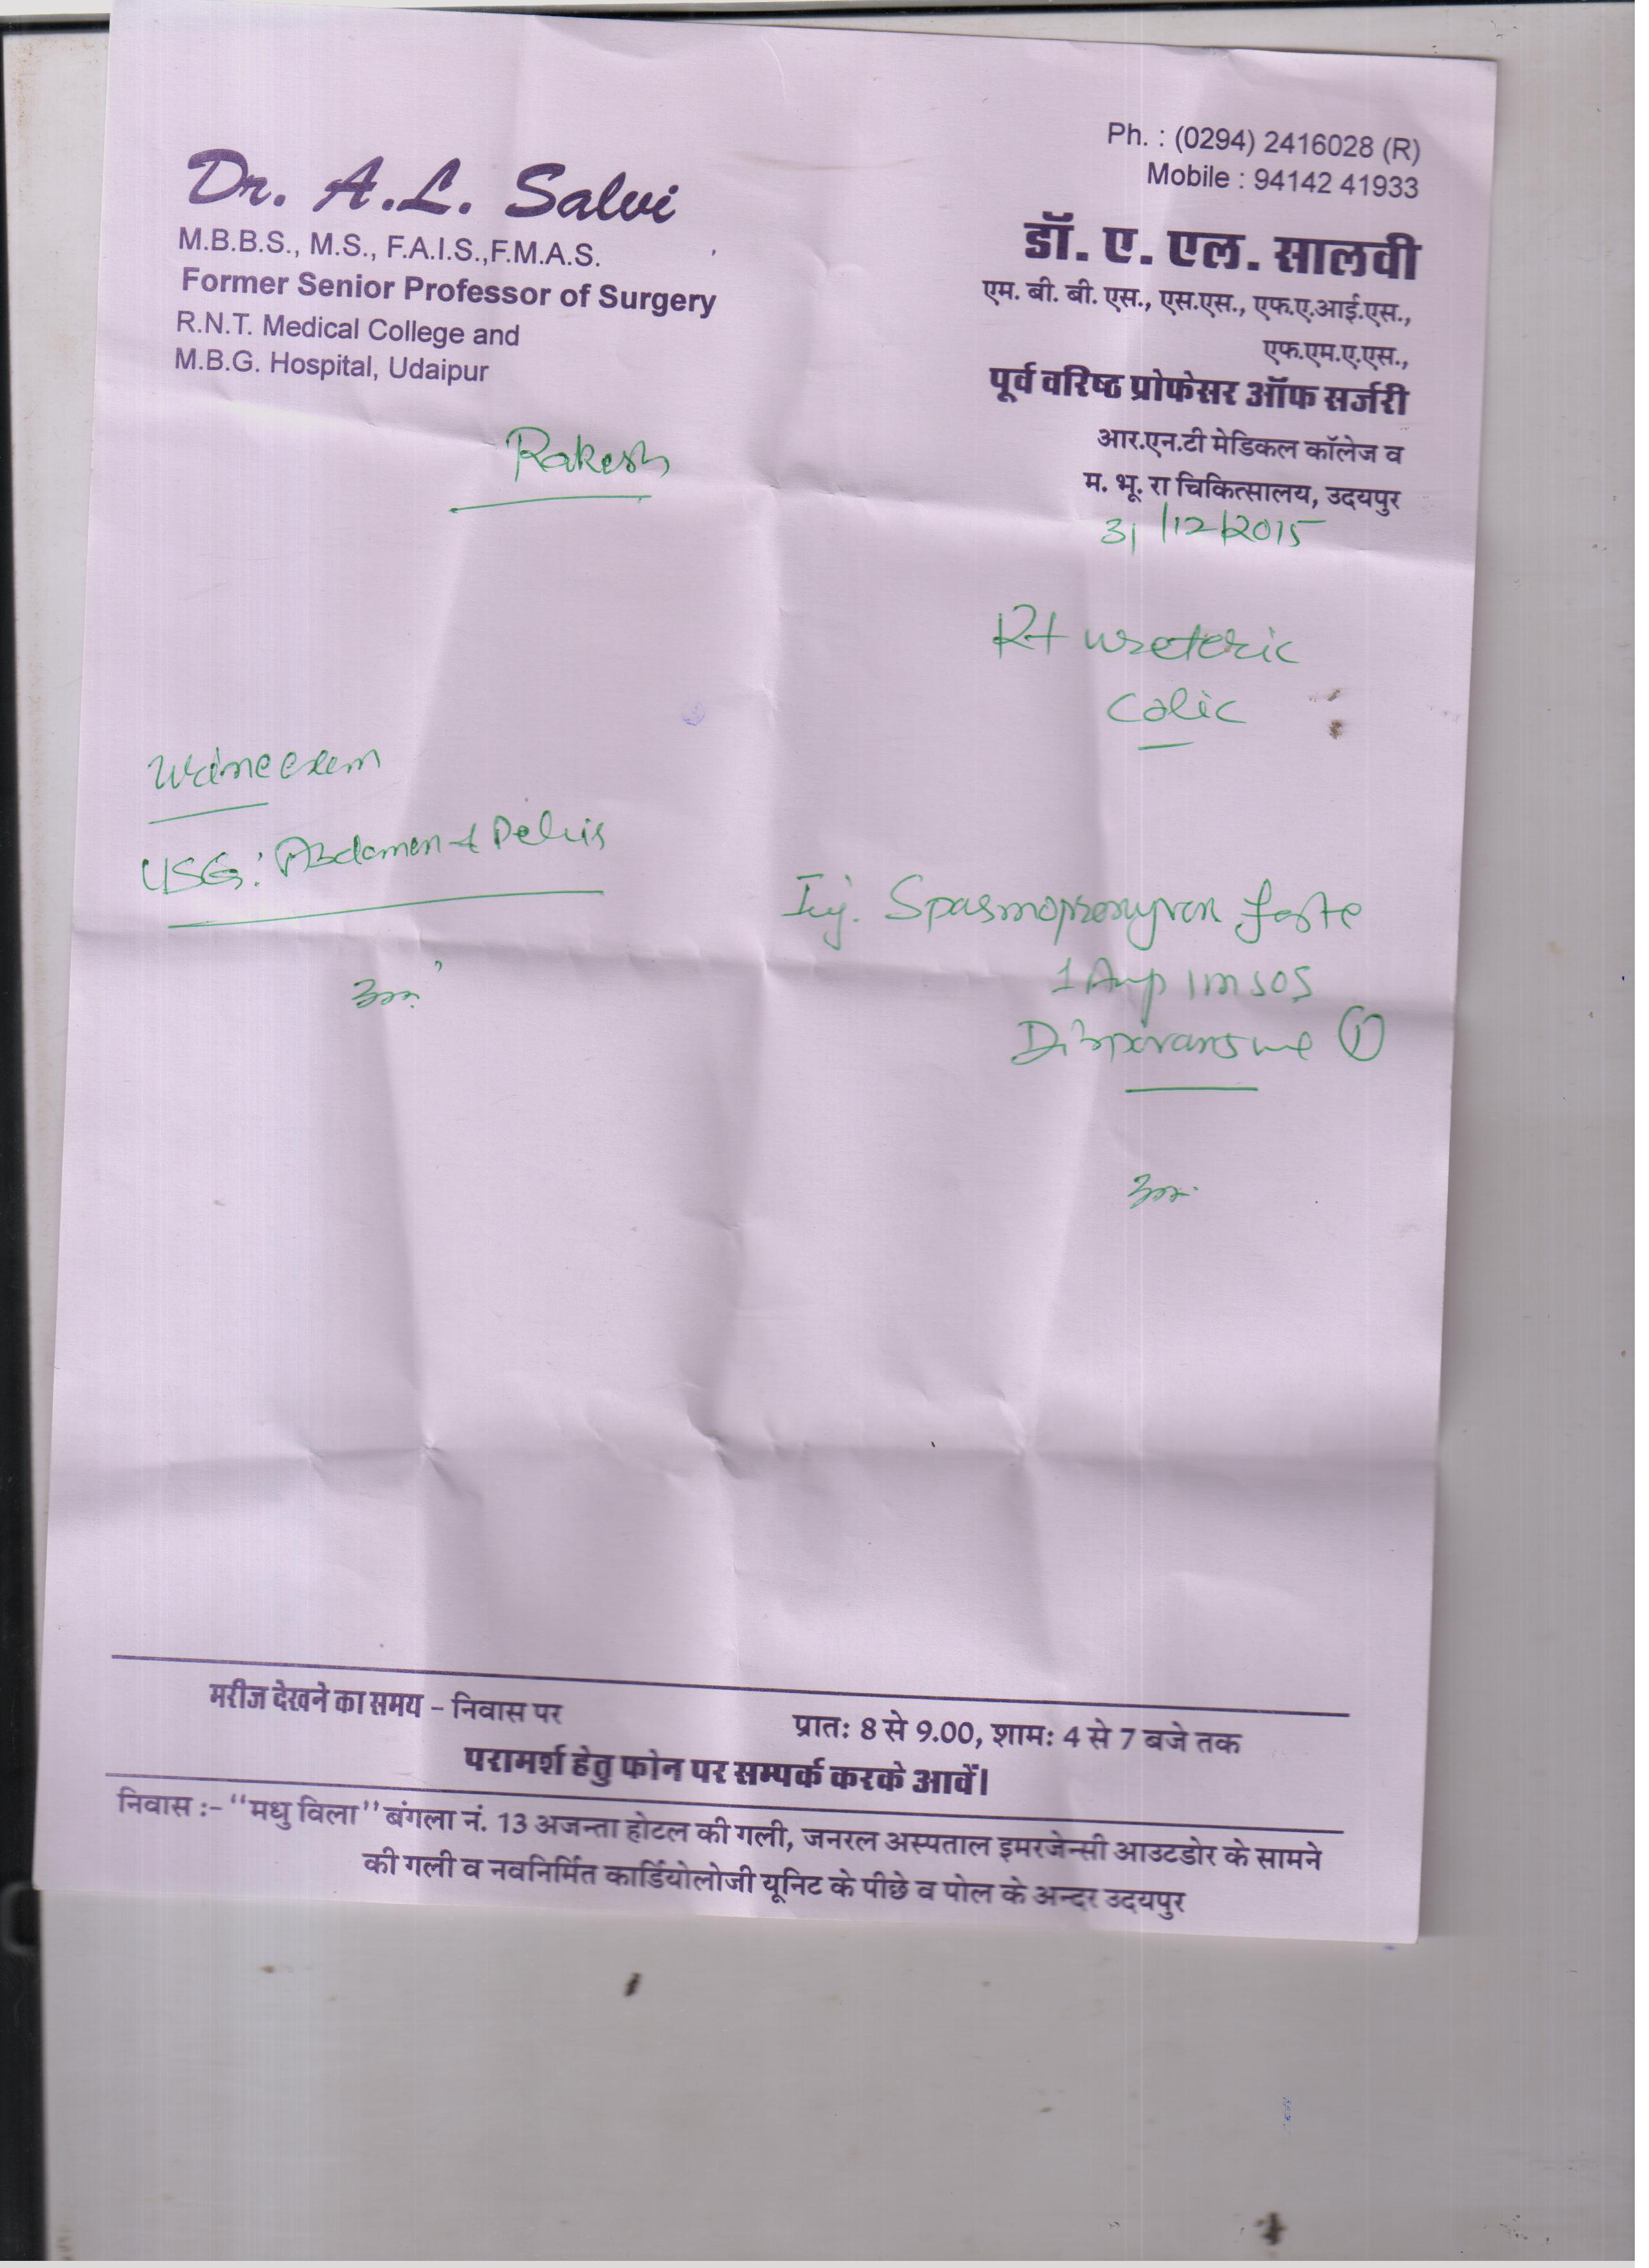 Ph. : (0294) 2416028 (R)
Mobile : 94142 41933
Dr. A.L. Salvi
M.B.B.S., M.S., F.A.I.S.,F.M.A.S.
Former Senior Professor of Surgery
R.N.T. Medical College and
M.B.G. Hospital, Udaipur
डॉ. ए. एल. सालवी
एम. बी. बी. एस., एस.एस., एफ.ए.आई.एस.,
एफ.एम.ए.एस.,
पूर्व वरिष्ठ प्रोफेसर ऑफ सर्जरी
आर.एन.टी मेडिकल कॉलेज व
म. भू. रा चिकित्सालय, उदयपुर
Rakesh
31/12/2015
Rt ureteric
colic
Urine exam
USG: Abdomen & Pelvis
Inj. forte
1 Amp IM SOS
①
मरीज देखने का समय - निवास पर
प्रातः 8 से 9.00, शामः 4 से 7 बजे तक
परामर्श हेतु फोन पर सम्पर्क करके आवें।
निवास :- "मधु विला" बंगला नं. 13 अजन्ता होटल की गली, जनरल अस्पताल इमरजेन्सी आउटडोर के सामने
की गली व नवनिर्मित कार्डियोलोजी यूनिट के पीछे व पोल के अन्दर उदयपुर